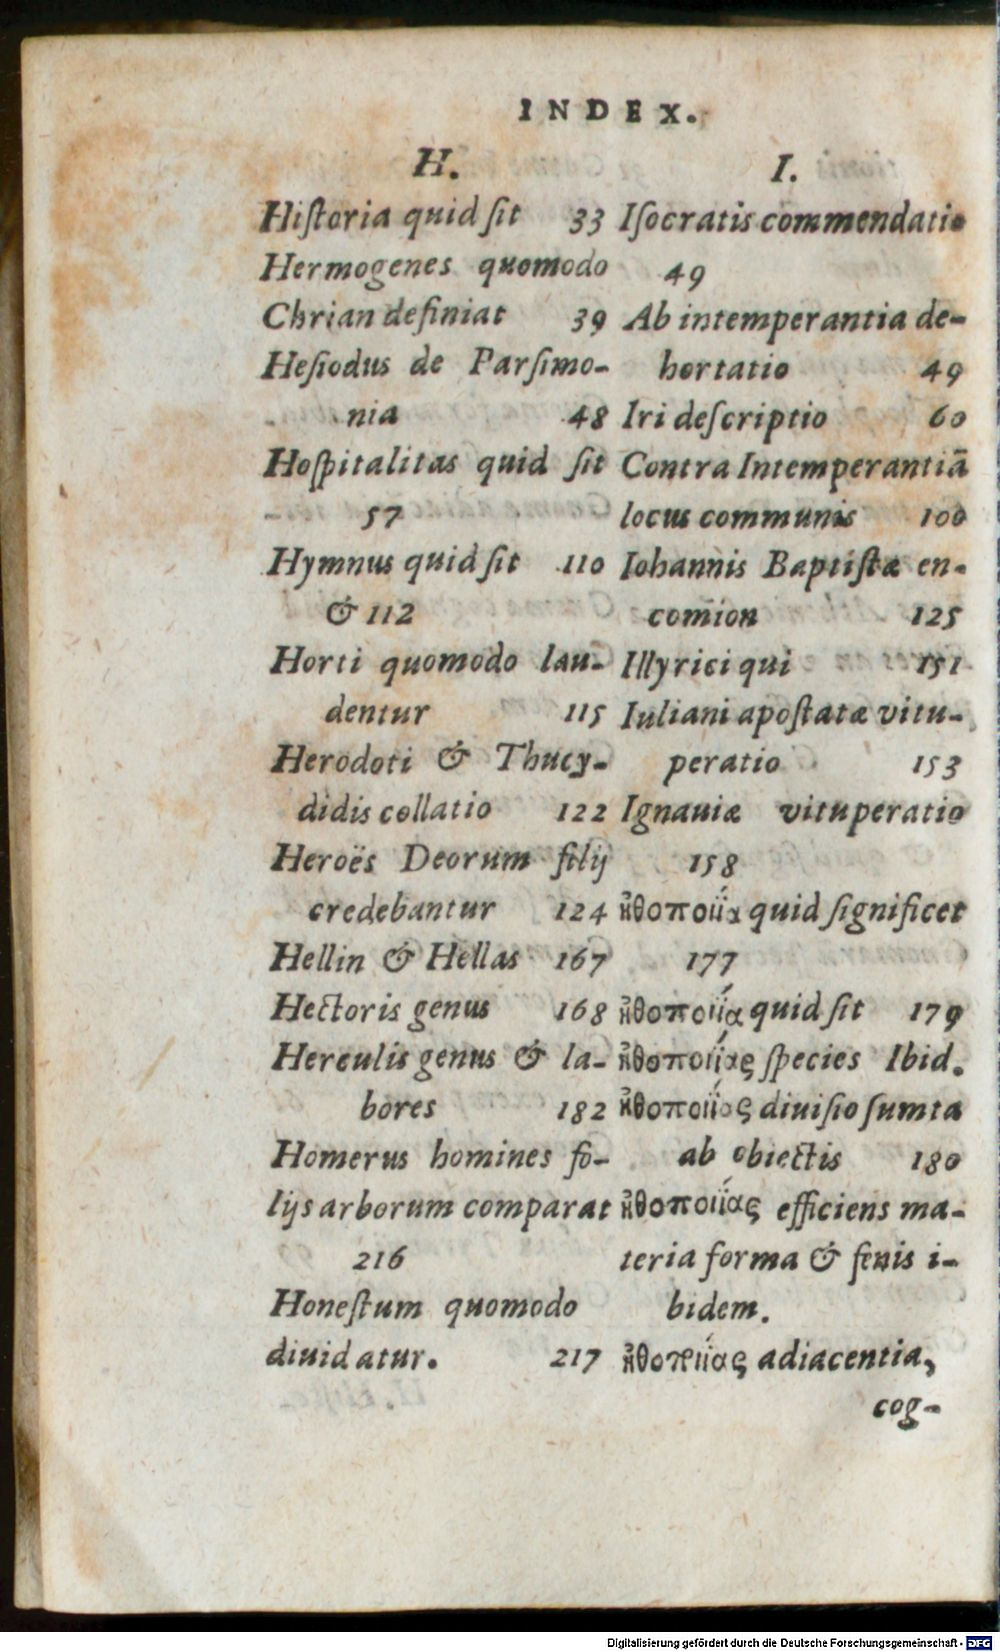 INDEX.
H.
Hiſtoria quid ſit 33
Hermogenes quomodo
Chrian definiat 39
Heſiodus de Parſimo-
nia 48
Hoſpitalitas quid ſit
57
Hymnus quid ſit 110
& 112
Horti quomodo lau-
dentur 115
Herodoti & Thucy-
didis collatio 122
Heroës Deorum filij
credebantur 124
Hellin & Hellas 167
Hectoris genus 168
Herculis genus & la-
bores 182
Homerus homines fo-
lijs arborum comparat
216
Honeſtum quomodo
diuidatur. 217
I.
Iſocratis commendatio
49
Ab intemperantia de-
hortatio 49
Iri deſcriptio 60
Contra Intemperantiā
locus communis 100
Iohannis Baptiſtæ en-
comion 125
Illyrici qui 151
Iuliani apoſtatæ vitu-
peratio 153
Ignauiæ vituperatio
158
ἠθοποιΐα quid ſignificet
177
ἠθοποιΐα quid ſit 179
ἠθοποιΐας ſpecies Ibid.
ἠθοποιΐας diuiſio ſumta
ab obiectis 180
ἠθοποιΐας efficiens ma-
teria forma & finis i-
bidem.
ἠθοποιΐας adiacentia,
cog-
Digitalisierung gefördert durch die Deutsche Forschungsgemeinschaft - DFG